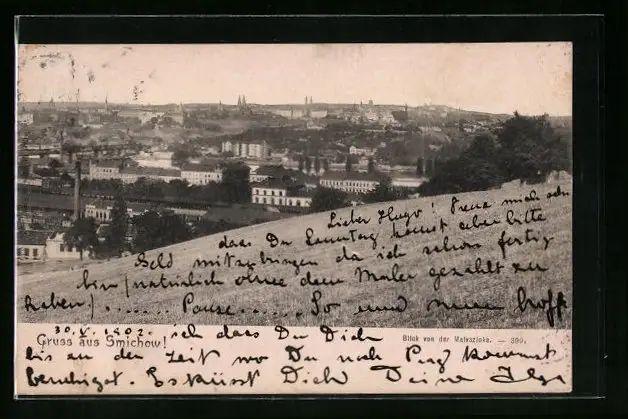 Lieber Hugo! Freue mich sehr
dass Du Sonntag kommst aber bitte
Geld mitzubringen da ich schon fertig
bin (natürlich ohne dem Maler gezahlt zu
haben)...... Pause..... So und nun hoff
30. V. 1902. ich dass Du Dich
Gruss aus Smichow!
Blick von der Malvazinka. — 399.
bis zu der Zeit wo Du nach Prag kommst
beruhigst. Es küsst Dich Deine Ilsa